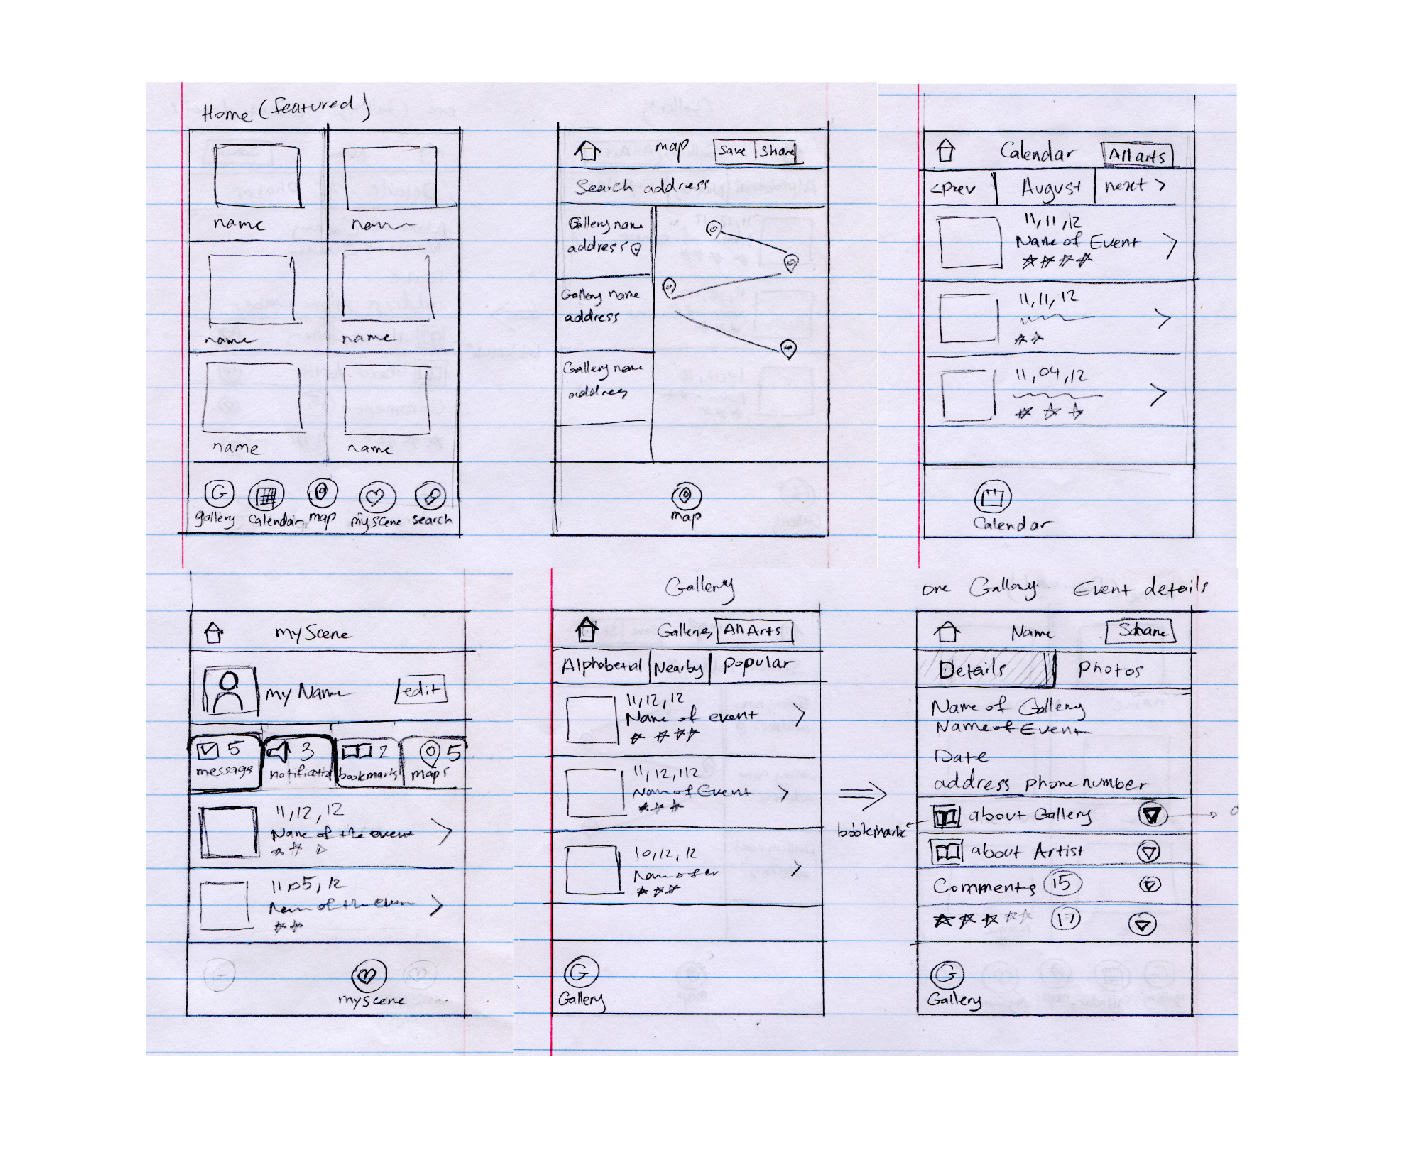 Home (featured)
name
name
name
name
name
name
gallery calendar map myscene search
map save share
Search address
Gallery name
address
Gallery name
address
Gallery name
address
map
Calendar All arts
<prev August next >
11, 11, 12
Name of Event
11, 11, 12
11, 04, 12
Calendar
myScene
my Name edit
5 3 2 5
message bookmarks maps
11, 12, 12
Name of the event
11, 05, 12
Name of the even
myscene
Gallery
Galleries All Arts
Nearby popular
11, 12, 12
Name of event
11, 12, 112
Name of Event
10, 12, 12
Gallery
bookmark
one Gallery Event details
Name Share
Details photos
Name of Gallery
Name of Event
Date
address phone number
about Gallery
about Artist
Comments 15
17
G
Gallery